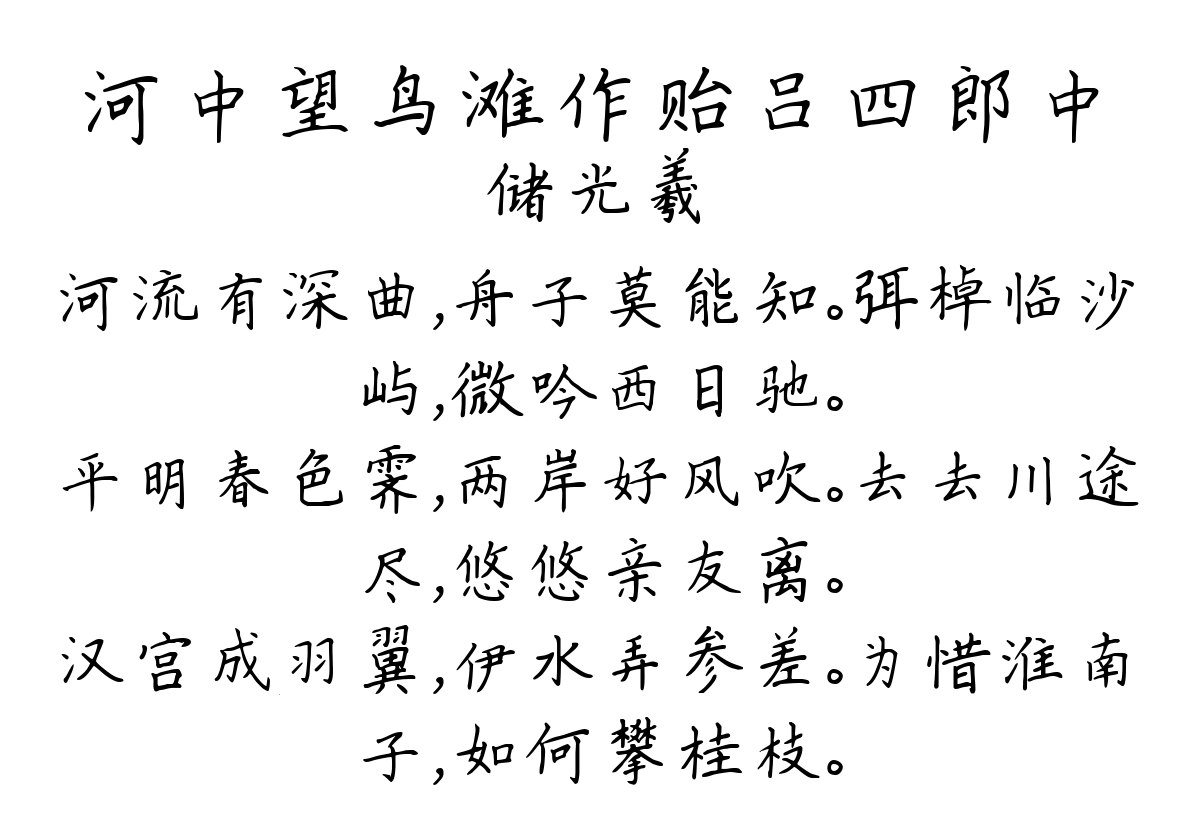 河中望鸟滩作贻吕四郎中
储光羲
河流有深曲,舟子莫能知。弭棹临沙
屿,微吟西日驰。
平明春色霁,两岸好风吹。去去川途
尽,悠悠亲友离。
汉宫成羽翼,伊水弄参差。为惜淮南
子,如何攀桂枝。